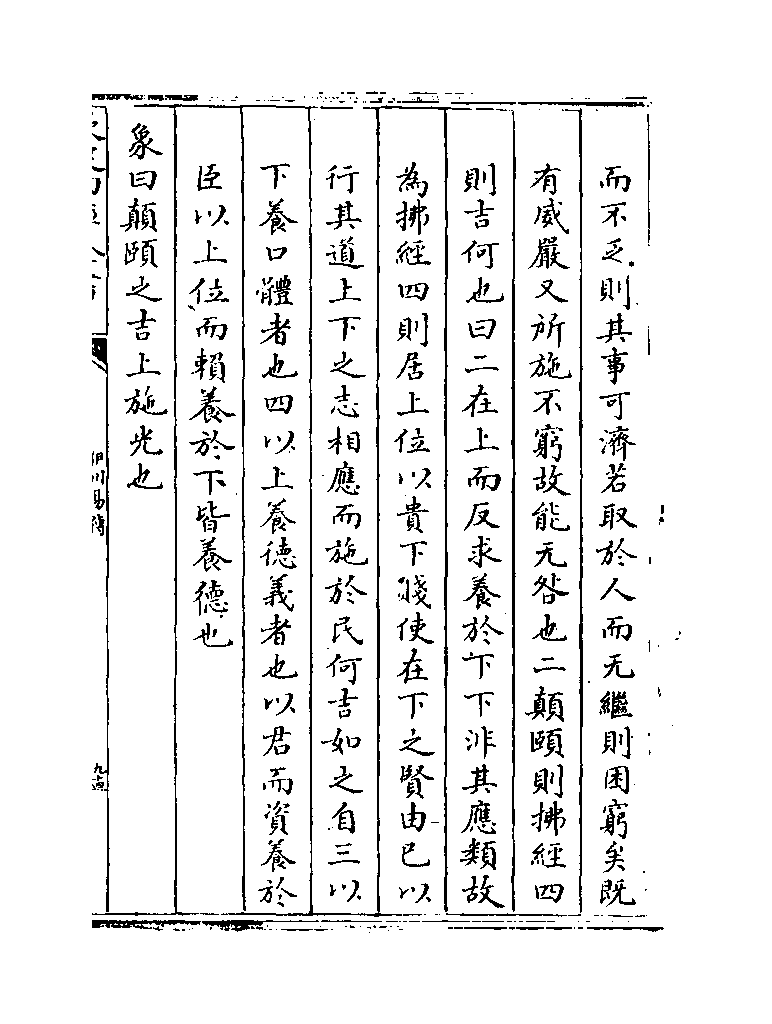 而不乏則其事可濟若取於人而无繼則困窮矣既
有威嚴又所施不窮故能无咎也二顛頤則拂經四
則吉何也曰二在上而反求養於下下非其應類故
為拂經四則居上位以貴下賤使在下之賢由己以
行其道上下之志相應而施於民何吉如之自三以
下養口體者也四以上養德義者也以君而資養於
臣以上位而賴養於下皆養德也
象曰顛頤之吉上施光也
伊川易傳